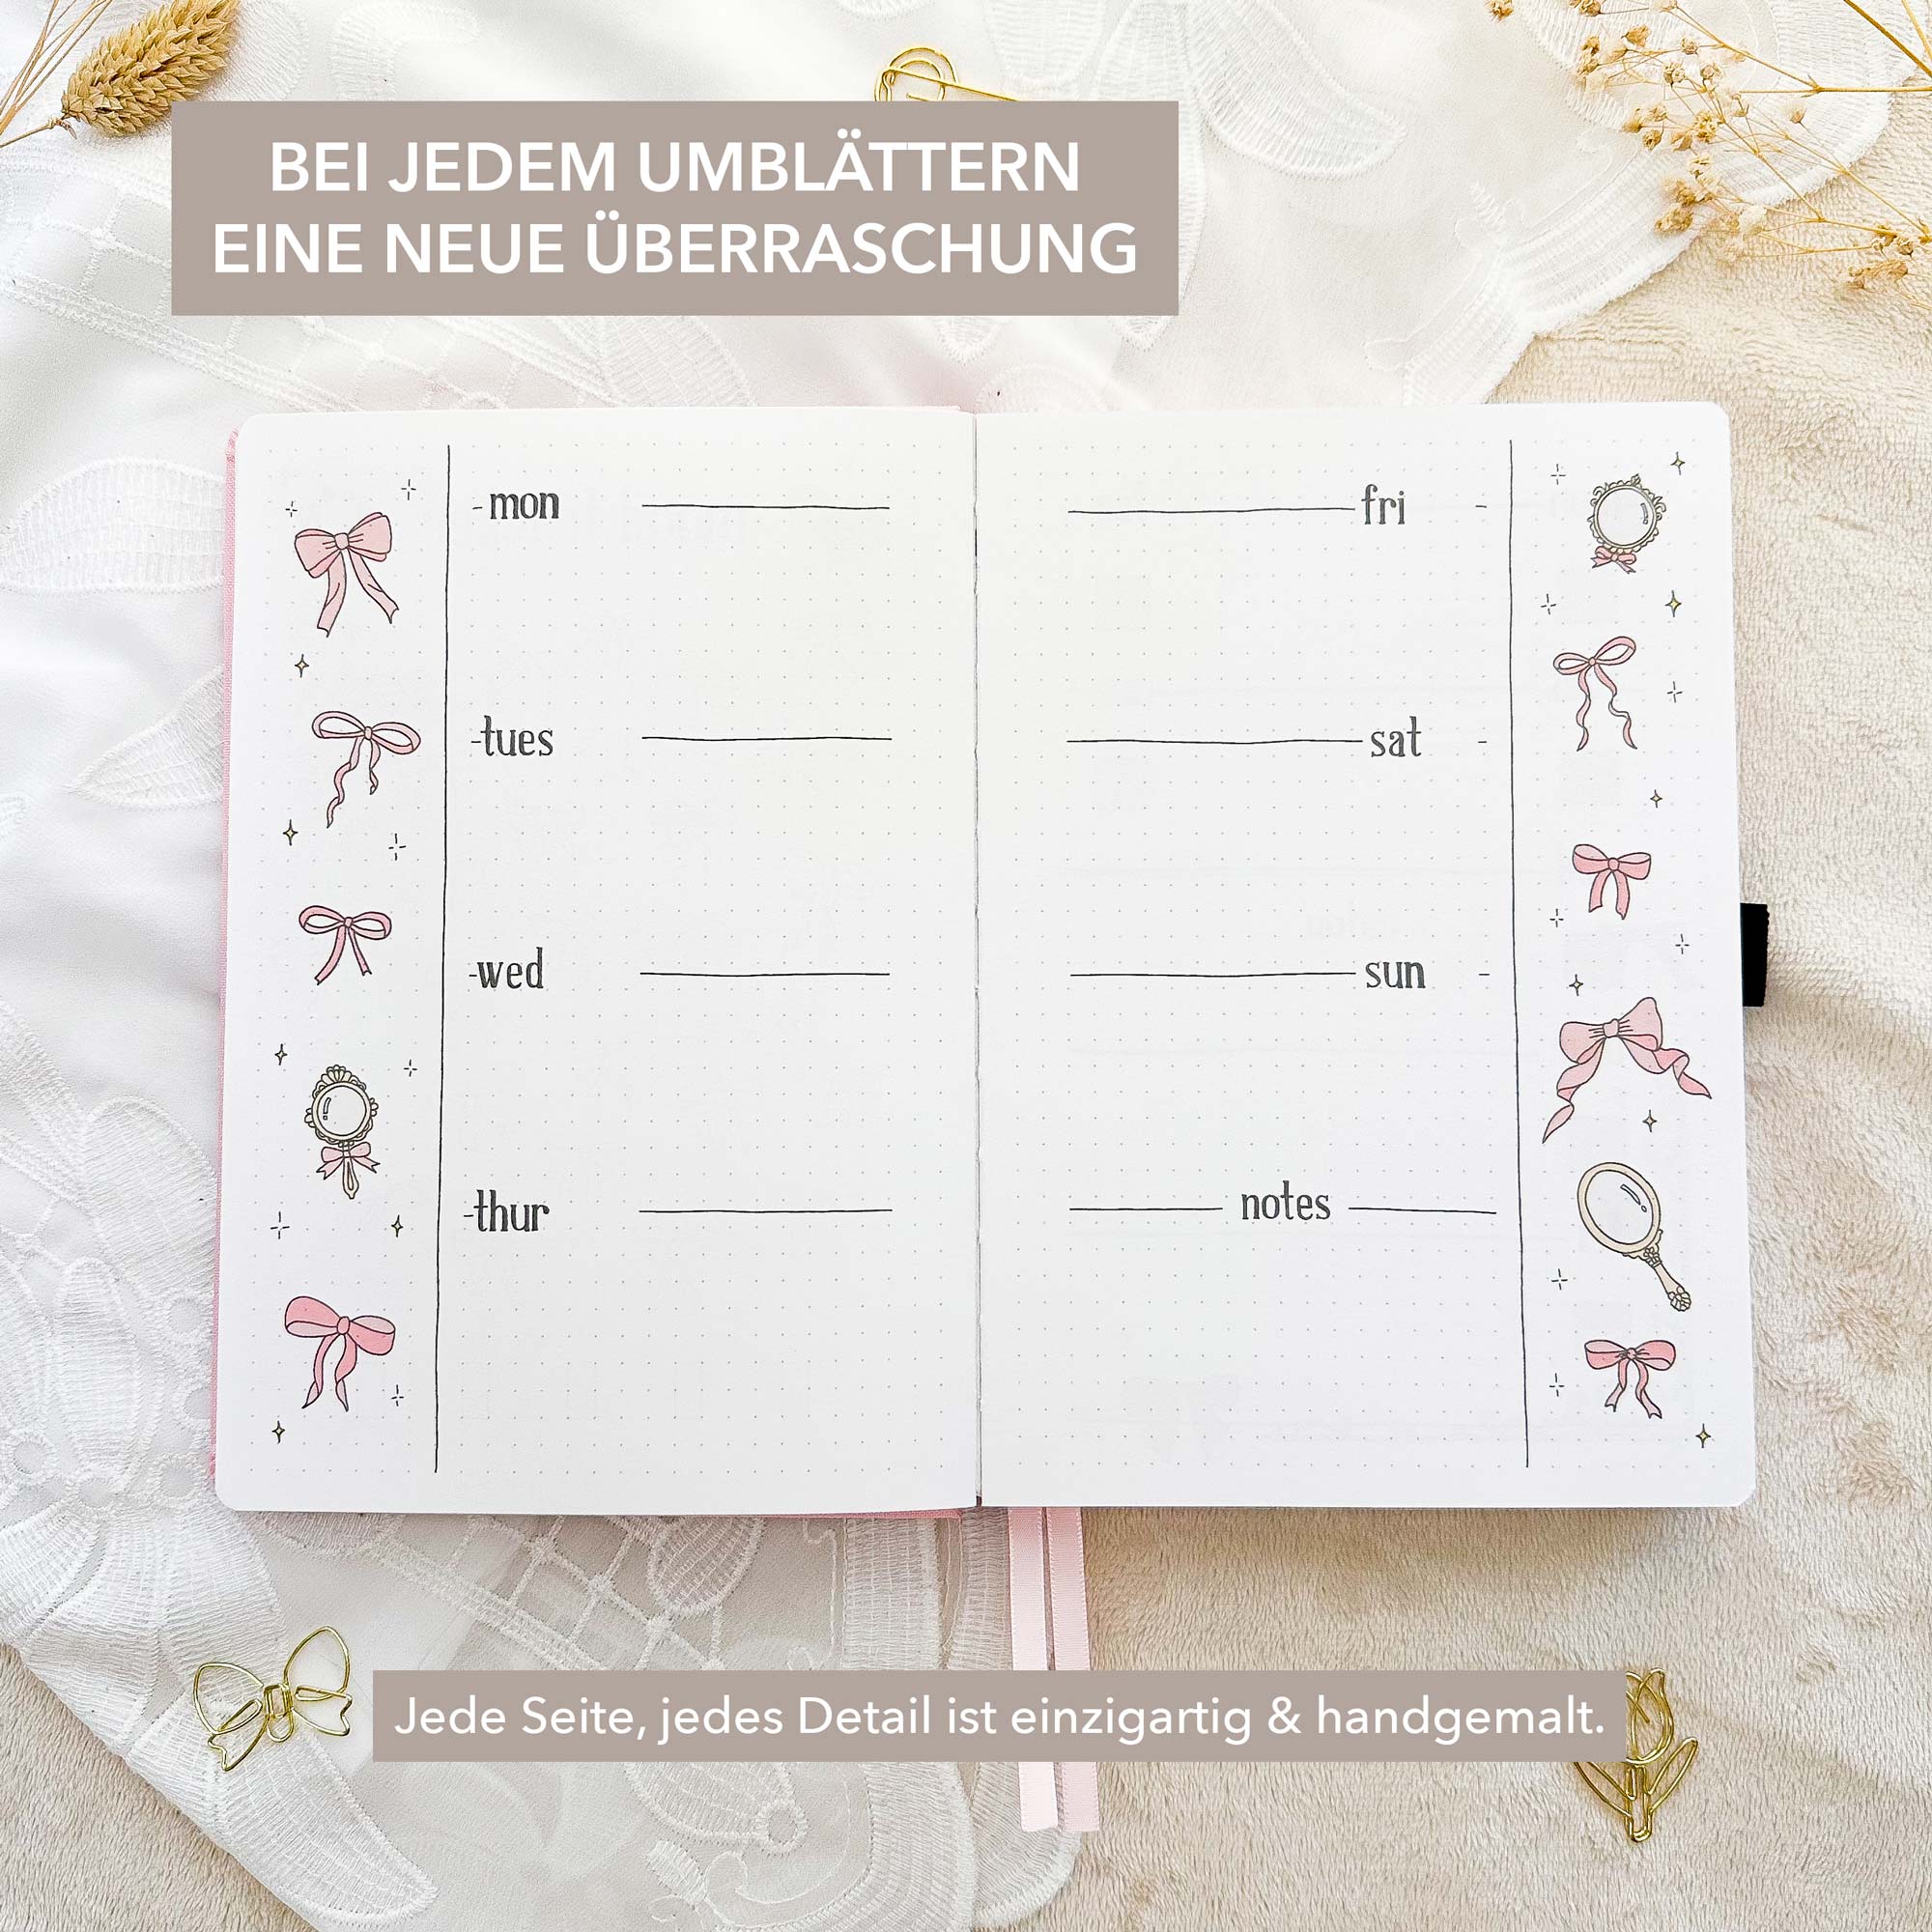 BEI JEDEM UMBLÄTTERN
EINE NEUE ÜBERRASCHUNG
mon
tues
wed
thur
fri
sat
sun
notes
Jede Seite, jedes Detail ist einzigartig & handgemalt.